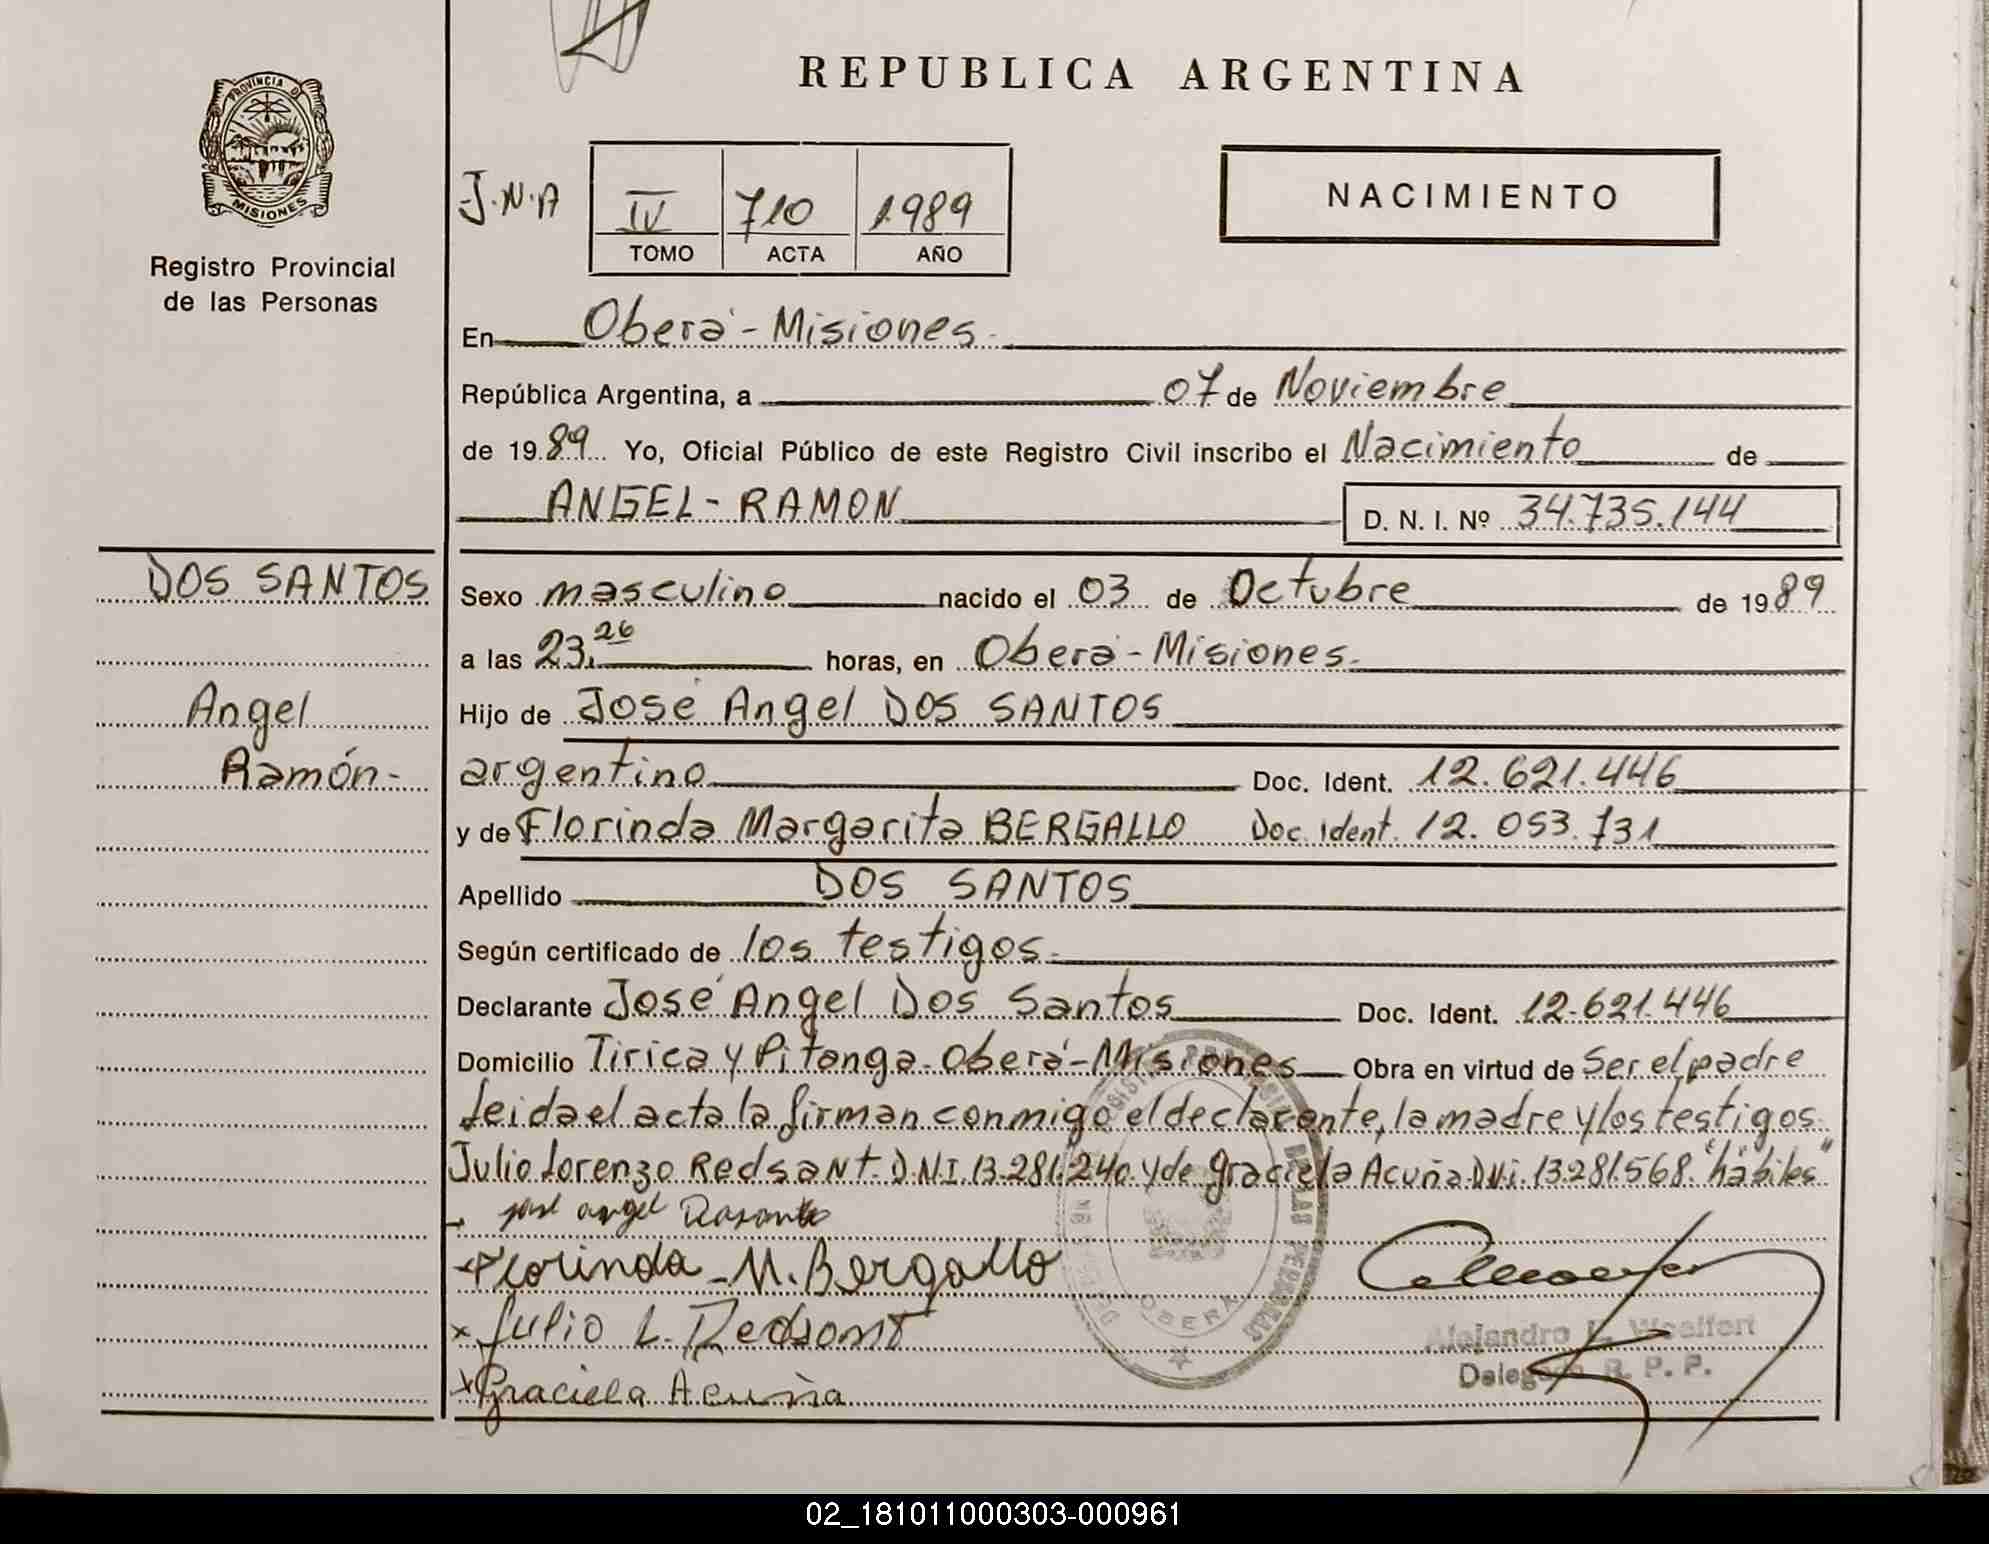 REPUBLICA ARGENTINA
PROVINCIA DE
MISIONES
Registro Provincial
de las Personas
J.N.A
IV 710 1989
TOMO ACTA AÑO
NACIMIENTO
En Oberá - Misiones.
República Argentina, a 07 de Noviembre
de 1989 Yo, Oficial Público de este Registro Civil inscribo el Nacimiento de
ANGEL - RAMON D. N. I. Nº 34.735.144
DOS SANTOS
Angel
Ramón-
Sexo masculino nacido el 03 de Octubre de 1989
a las 23.26 horas, en Oberá - Misiones.
Hijo de José Angel DOS SANTOS
argentino Doc. Ident. 12.621.446
y de Florinda Margarita BERGALLO Doc. Ident. 12.053.731
Apellido DOS SANTOS
Según certificado de los testigos.
Declarante José Angel Dos Santos Doc. Ident. 12.621.446
Domicilio Tirica y Pitanga - Oberá - Misiones Obra en virtud de Ser el padre
Leida el acta la firman conmigo el declarante, la madre y los testigos
Julio Lorenzo Redsant. D.N.I. 13.281.240. y de Graciela Acuña D.N.i. 13.281.568. "hábiles"
José angel
Florinda M. Bergallo
x Julio L. Redsant
x Graciela Acuña
OBERA
Alejandro Woelfert
Delegado R. P. P.
02_181011000303-000961